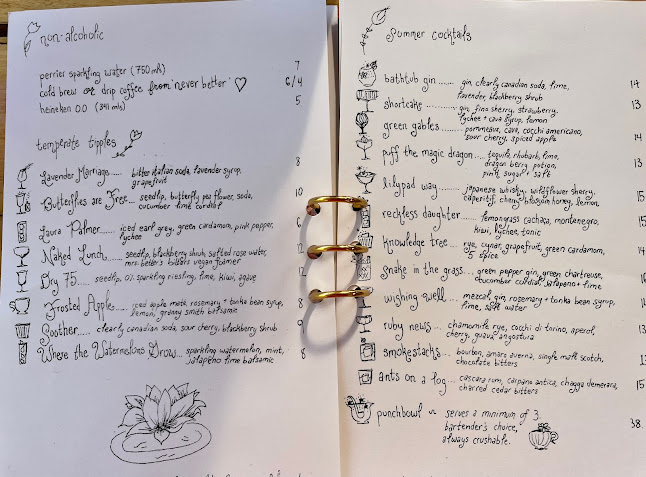 non-alcoholic
perrier sparkling water (750 mls) 7
cold brew or drip coffee from 'never better' ♡ 6/4
heineken 0.0 (341 mls) 5
temperate tipples
Lavender Marriage..... bitter italian soda, lavender syrup, 8
grapefruit
Butterflies are Free... seedlip, butterfly pea flower, soda, 10
cucumber lime cordial
Laura Palmer... iced earl grey, green cardamom, pink pepper, 6
lychee
Naked Lunch... seedlip, blackberry shrub, salted rose water, 12
mrs. better's bitters vegan foamer
Dry 75..... seedlip, 0% sparkling riesling, lime, kiwi, agave 12
Frosted Apples... iced apple mate, rosemary + tonka bean syrup, 8
lemon, granny smith balsamic
Soother..... clearly canadian soda, sour cherry, blackberry shrub 9
Where the Watermelons Grow... sparkling watermelon, mint, 8
jalapeño lime balsamic
summer cocktails
bathtub gin..... gin, clearly canadian soda, lime, 14
lavender, blackberry shrub
shortcake ......... gin, fino sherry, strawberry, 13
lychee + cava syrup, lemon
green gables........ pommeau, cava, cocchi americano, 14
sour cherry, spiced apple
puff the magic dragon... tequila, rhubarb, lime, 13
dragon berry potion,
pink sugar + salt
lilypad way...... japanese whisky, wildflower sherry, 15
caperitif, cherry blossom honey, lemon
reckless daughter...... lemongrass cachaza, montenegro, 15
kiwi, lychee, tonic
knowledge tree..... rye, cynar, grapefruit, green cardamom, 14
5 spice
snake in the grass.... green pepper gin, green chartreuse,
cucumber cordial, jalapeño + lime
wishing well..... mezcal, gin, rosemary + tonka bean syrup, 14
lime, salt water
ruby news.... chamomile rye, cocchi di torino, aperol,
cherry, guava, angostura
smokestacks ..... bourbon, amaro averna, single malt scotch,
chocolate bitters
ants on a log.... cascara rum, carpano antica, chagga demerara, 15
charred cedar bitters
punchbowl ~ serves a minimum of 3. 38.
bartender's choice,
always crushable.